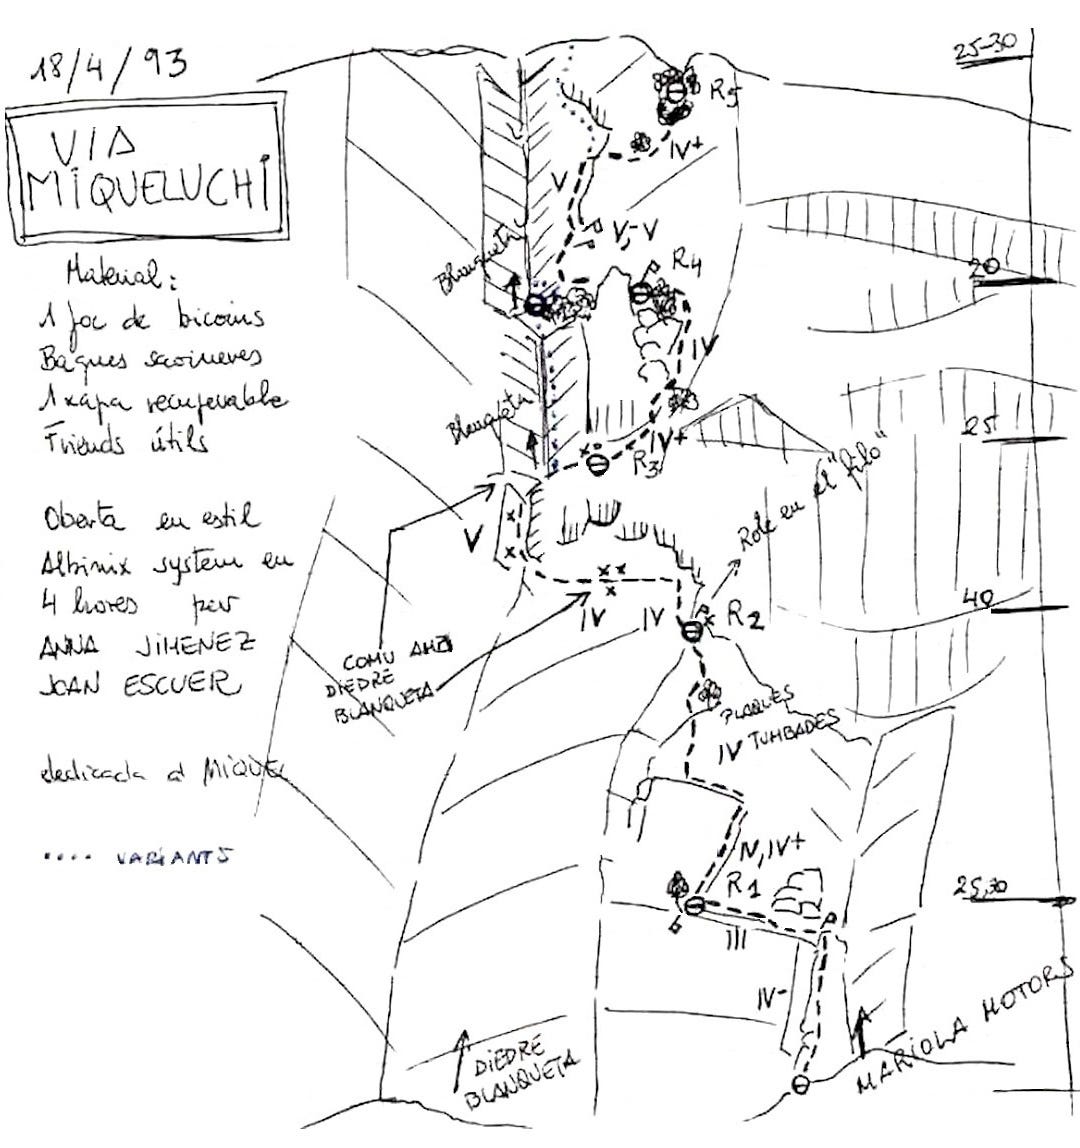 18/4/93
VIA
MIQUELUCHI
Material:
1 joc de bicoins
Bagues savineres
1 xapa recuperable
Friends útils
Oberta en estil
Albinix system en
4 hores per
ANNA JIMENEZ
JOAN ESCUER
dedicada a MIQUEL
.... VARIANTS
25-30
R5
IV+
V
V,-V
Blanqueta
R4
20
IV
Blanqueta
V+
R3
25
Role en el "filo"
V
IV
IV
R2
40
COMU AMB
DIEDRE
BLANQUETA
PLAQUES
TUMBADES
IV
IV,IV+
R1
25,30
III
IV-
DIEDRE
BLANQUETA
MARIOLA MOTORS